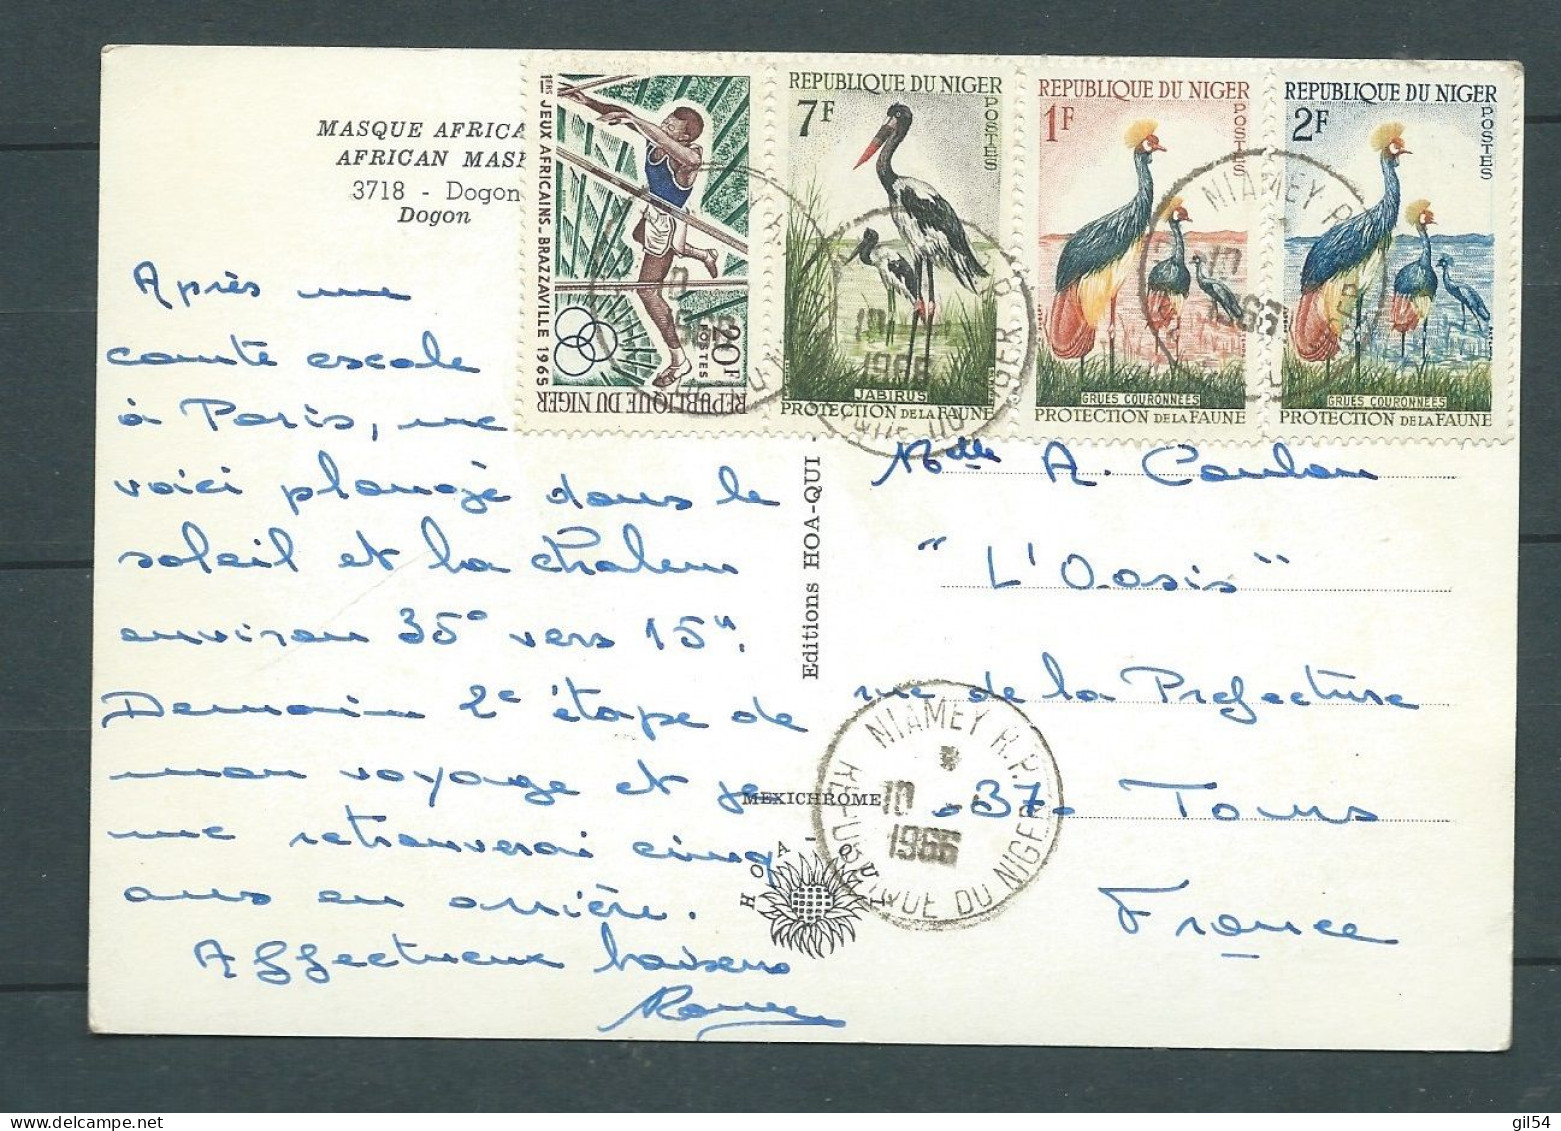 MASQUE AFRICA
AFRICAN MASK
3718 - Dogon
Dogon
1ERS JEUX AFRICAINS_BRAZZAVILLE 1965
20F
POSTES
REPUBLIQUE DU NIGER
REPUBLIQUE DU NIGER
7F
POSTES
JABIRUS
PROTECTION DE LA FAUNE
REPUBLIQUE DU NIGER
1F
POSTES
GRUES COURONNÉES
PROTECTION DE LA FAUNE
REPUBLIQUE DU NIGER
2F
POSTES
GRUES COURONNÉES
PROTECTION DE LA FAUNE
NIAMEY R.P.
10
1966
Après une
courte escale
à Paris, me
voici plongé dans le
soleil et la chaleur
environ 35° vers 15h.
Demain 2e étape de
mon voyage et je
me retrouverai cinq
ans en arrière.
Affectueux baisers
Editions HOA-QUI
MEXICHROME
HOA-QUI
Melle A. Coulon
"L'Oasis"
rue de la Prefecture
37. Tours
France
NIAMEY R.P.
10
1966
REPUBLIQUE DU NIGER
gil54